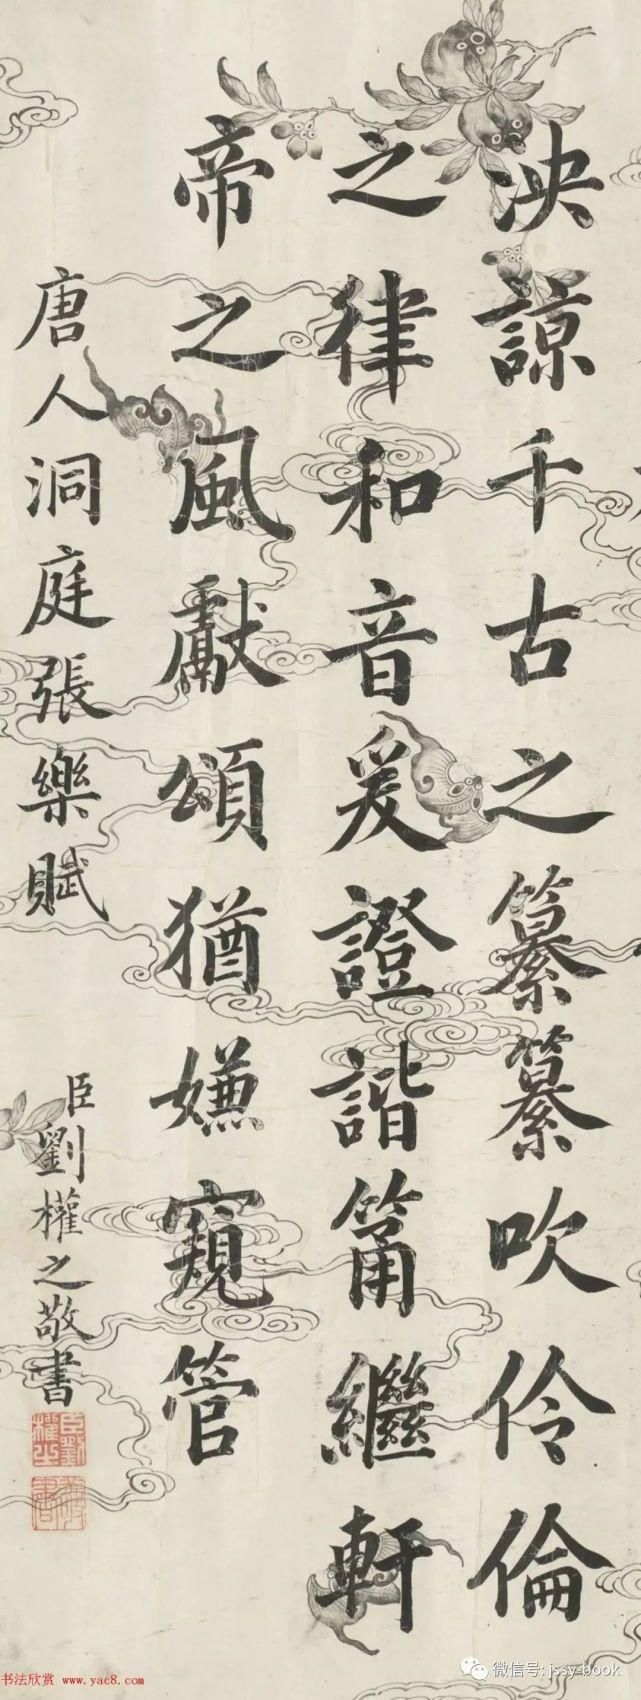 泱諒千古之纂纂吹伶倫
之律和音爰證諧箾繼軒
帝之風獻頌猶嫌窺管
唐人洞庭張樂賦
臣劉權之敬書
臣劉權之
敬書
书法欣赏 www.yac8.com
微信号: jssy-book